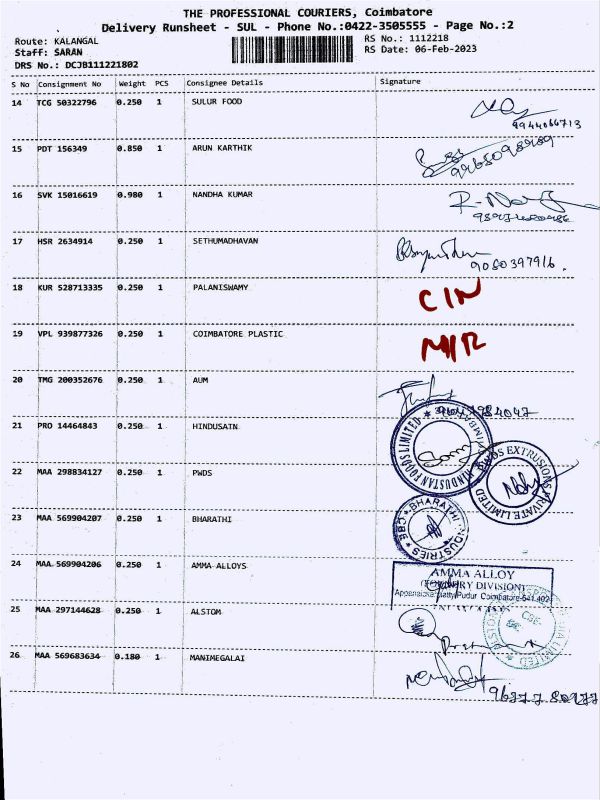 THE PROFESSIONAL COURIERS, Coimbatore
Delivery Runsheet - SUL - Phone No.:0422-3505555 - Page No.:2
Route: KALANGAL RS No.: 1112218
Staff: SARAN RS Date: 06-Feb-2023
DRS No.: DCJB111221802
S No Consignment No Weight PCS Consignee Details Signature
14 TCG 50322796 0.250 1 SULUR FOOD
9944066713
15 PDT 156349 0.850 1 ARUN KARTHIK
16 SVK 15016619 0.980 1 NANDHA KUMAR
17 HSR 2634914 0.250 1 SETHUMADHAVAN
9080397916.
18 KUR 528713335 0.250 1 PALANISWAMY CIN
19 VPL 939877326 0.250 1 COIMBATORE PLASTIC
20 TMG 200352676 0.250 1 AUM
21 PRO 14464843 0.250 1 HINDUSATN
HINDUSTAN FOODS LIMITED
22 MAA 298834127 0.250 1 PWDS
EXTRUSIONS PRIVATE LIMITED
23 MAA 569904207 0.250 1 BHARATHI
BHARATHI INDUSTRIES CBE
24 MAA 569904206 0.250 1 AMMA ALLOYS
AMMA ALLOY
DIVISION)
Pudur Coimbatore-641 402
25 MAA 297144628 0.250 1 ALSTOM
LIMITED
26 MAA 569683634 0.180 1 MANIMEGALAI